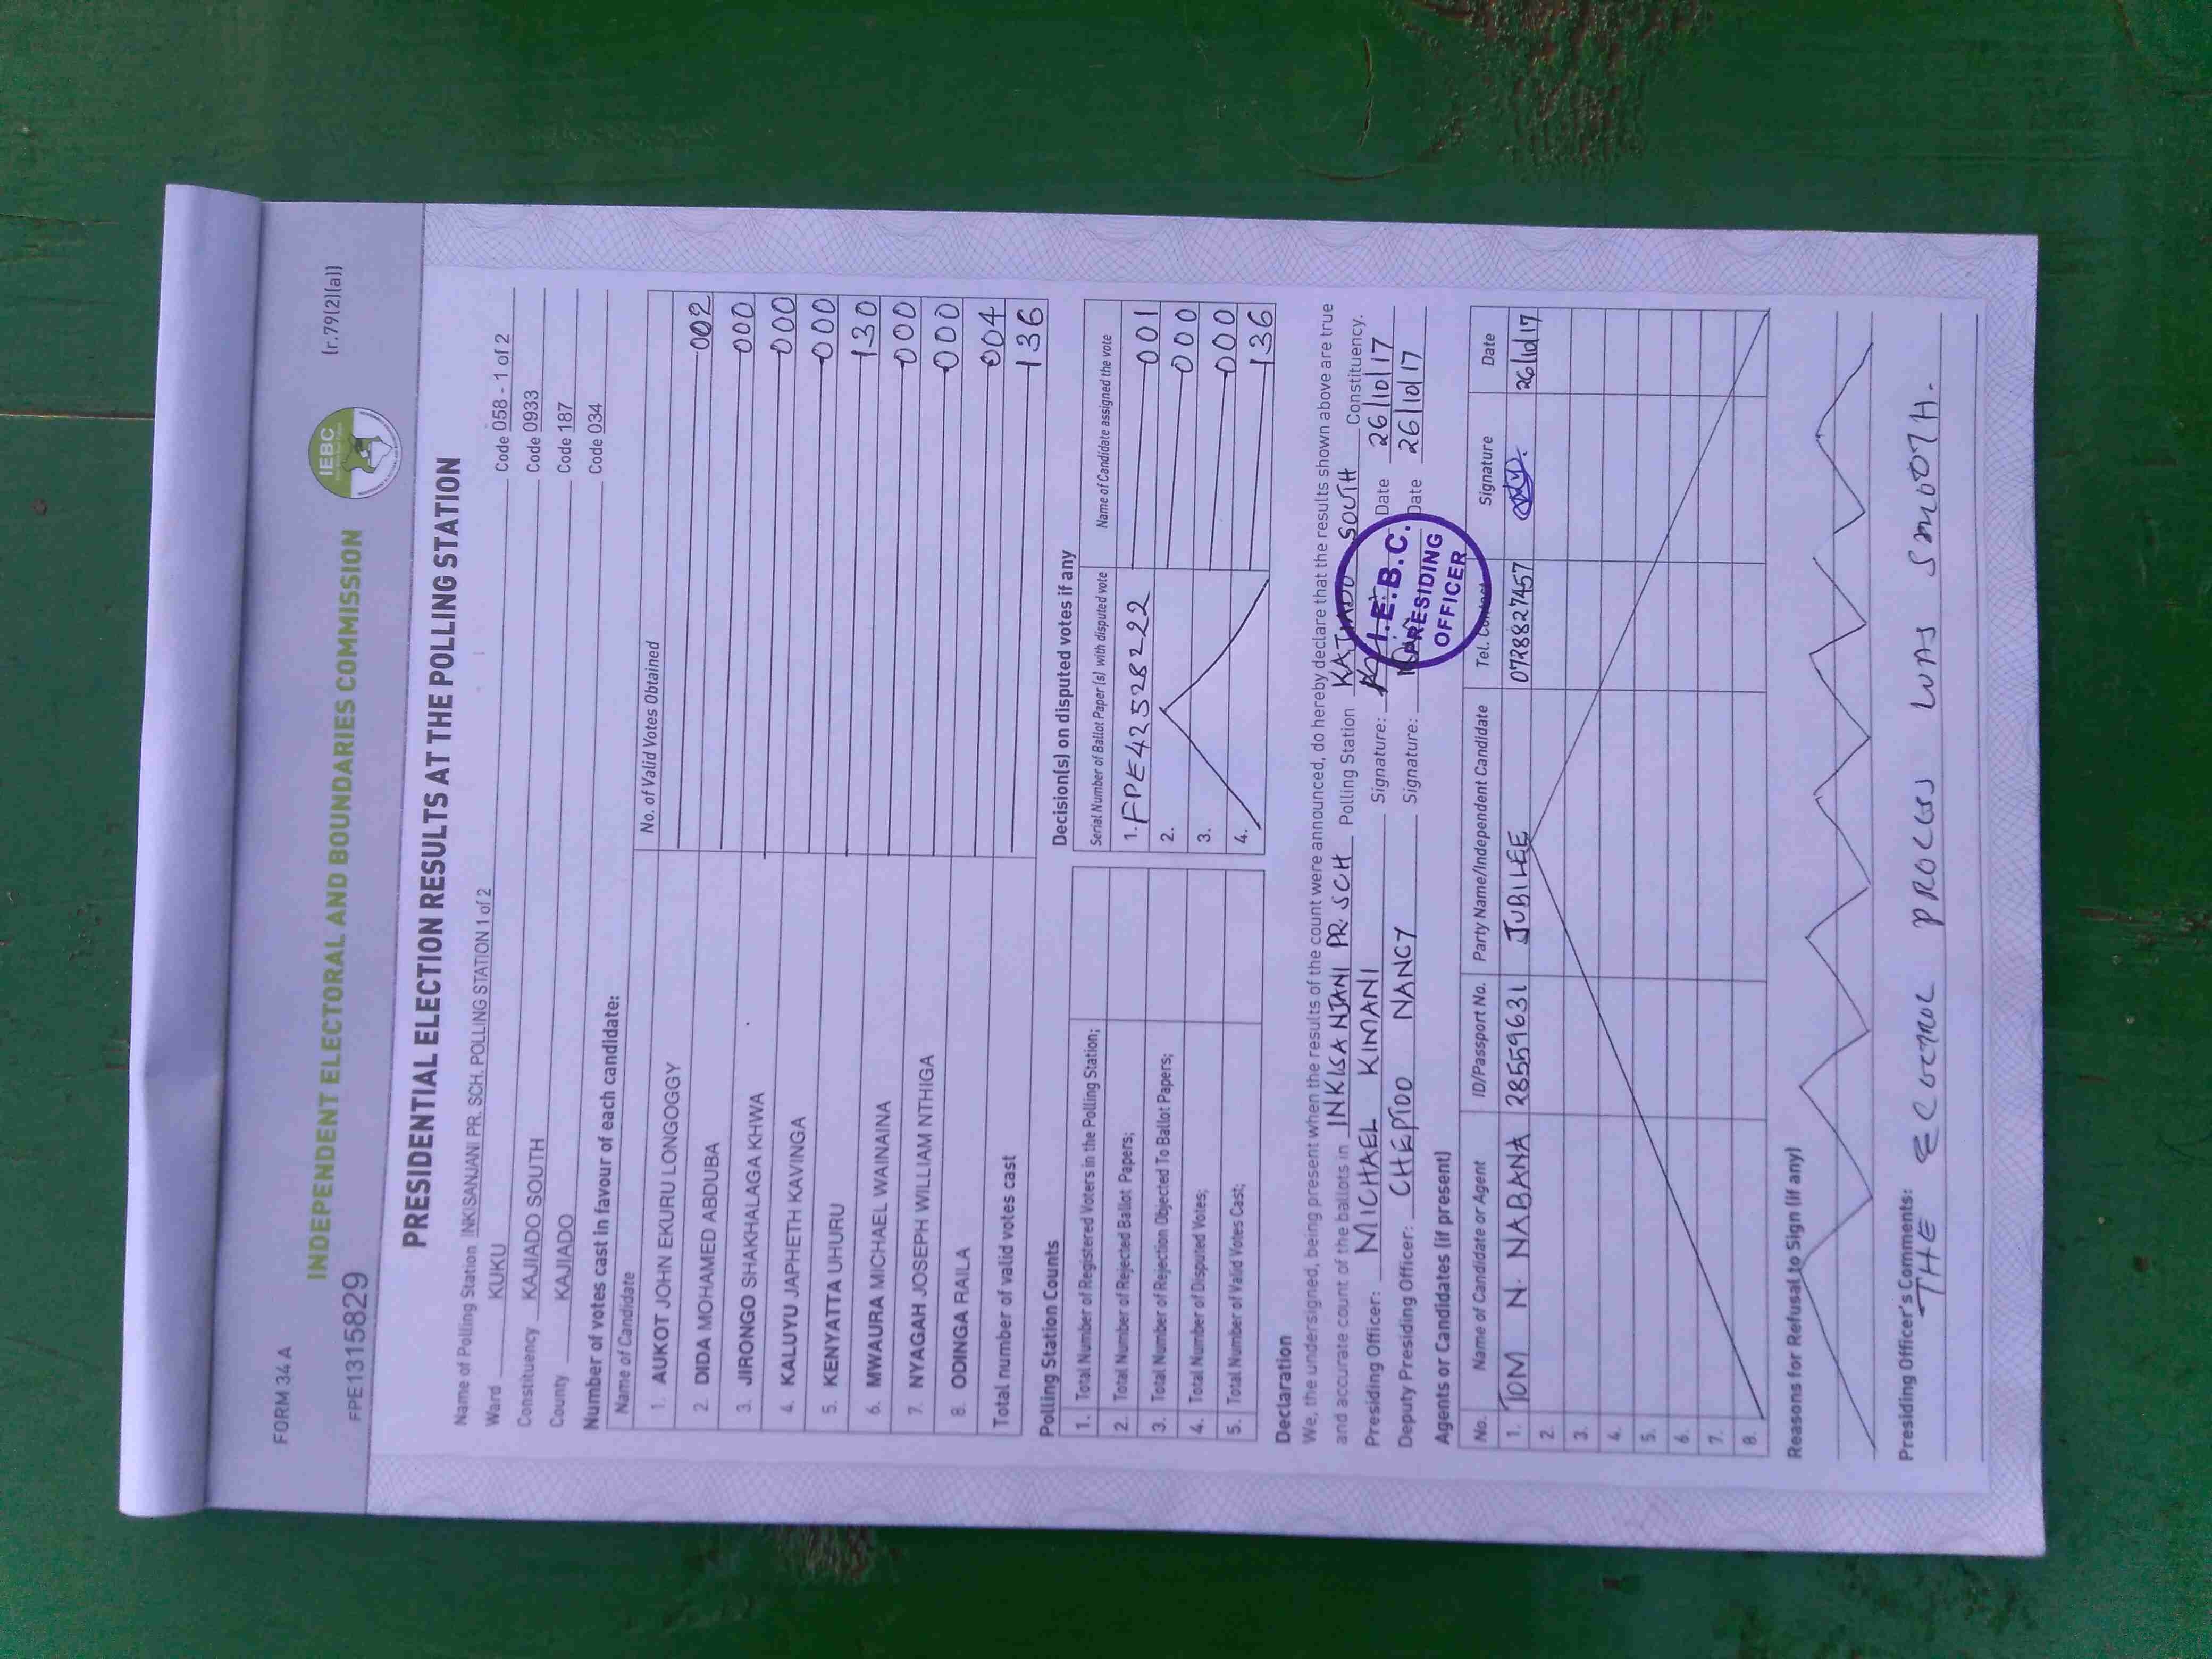 FORM 34 A
[r.79(2)(a)]
IEBC
INDEPENDENT ELECTORAL AND BOUNDARIES COMMISSION
FPE13158​29
PRESIDENTIAL ELECTION RESULTS AT THE POLLING STATION
Name of Polling Station INKISANJANI PR. SCH. POLLING STATION 1 of 2 Code 058 - 1 of 2
Ward KUKU Code 0933
Constituency KAJIADO SOUTH Code 187
County KAJIADO Code 034
Number of votes cast in favour of each candidate:
Name of Candidate No. of Valid Votes Obtained
1. AUKOT JOHN EKURU LONGOGGY 002
2. DIDA MOHAMED ABDUBA 000
3. JIRONGO SHAKHALAGA KHWA 000
4. KALUYU JAPHETH KAVINGA 000
5. KENYATTA UHURU 130
6. MWAURA MICHAEL WAINAINA 000
7. NYAGAH JOSEPH WILLIAM NTHIGA 000
8. ODINGA RAILA 004
Total number of valid votes cast 136
Polling Station Counts
1. Total Number of Registered Voters in the Polling Station;
2. Total Number of Rejected Ballot Papers;
3. Total Number of Rejection Objected To Ballot Papers;
4. Total Number of Disputed Votes;
5. Total Number of Valid Votes Cast;
Decision(s) on disputed votes if any
Serial Number of Ballot Paper (s) with disputed vote Name of Candidate assigned the vote
1. FPE42528222 001
2. 000
3. 000
4. 136
Declaration
We, the undersigned, being present when the results of the count were announced, do hereby declare that the results shown above are true
and accurate count of the ballots in INKISANJANI PR. SCH Polling Station KAJIADO SOUTH Constituency.
Presiding Officer: MICHAEL KIMANI Signature: Date 26/10/17
Deputy Presiding Officer: CHEPTOO NANCY Signature: Date 26/10/17
I.E.B.C.
PRESIDING
OFFICER
Agents or Candidates (if present)
No. Name of Candidate or Agent ID/Passport No. Party Name/Independent Candidate Tel. Contact Signature Date
1. TOM N. NABANA 28559631 JUBILEE 0728827457 26/10/17
2.
3.
4.
5.
6.
7.
8.
Reasons for Refusal to Sign (if any)
Presiding Officer's Comments:
THE PROCESS WAS SMOOTH.